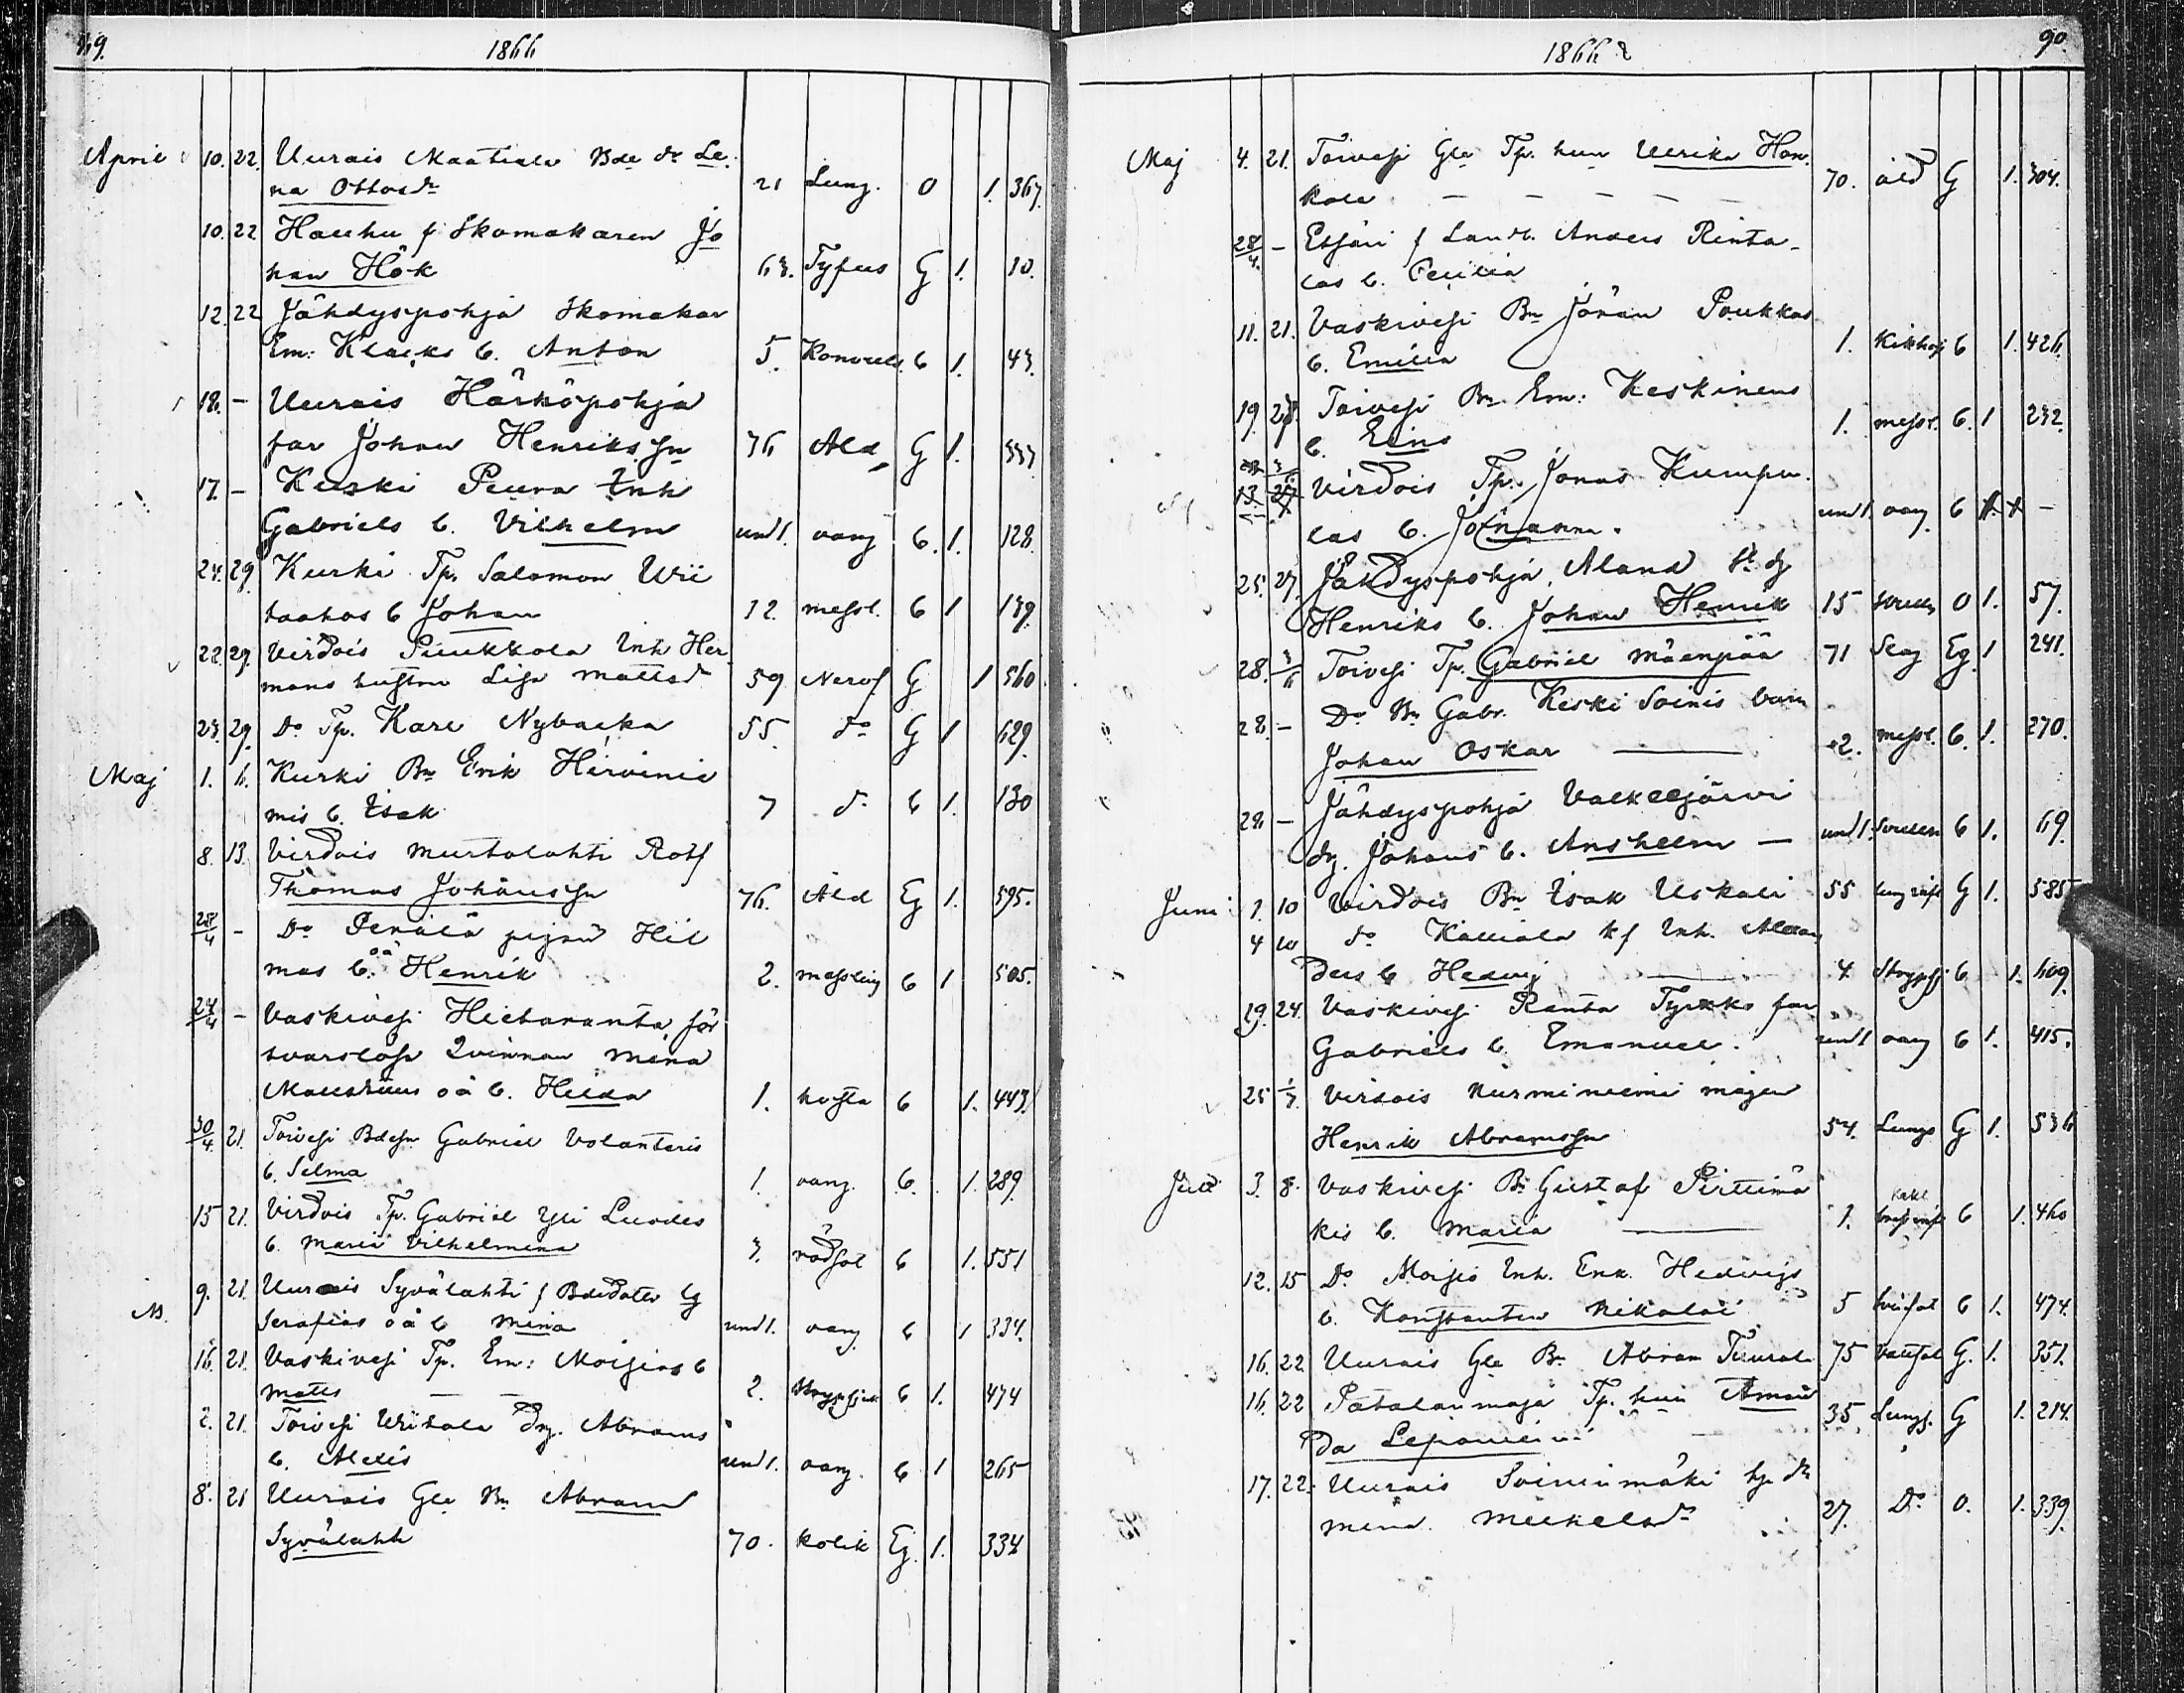 1866
April 10. 22. Uurais Maatiala Bde dr Le-
na Ottosdr 21 Lung. O 1. 367.
10. 22 Hauhu f Skomakaren Jo
han Hök 63. Tyfus G 1. 10.
12. 22 Jähdyspohja Skomakar
Em: Klacks b. Anton 5. Konvuls. 6 1. 43.
18. - Uurais Härköpohja
far Johan Henrikssn 76 Åld G 1.
17. - Kurki Peura Inh
Gabriels b. Vilhelm und 1. oang 6. 1. 128.
24. 29. Kurki Tp. Salomon Wii
taahos b Johan 12. messl. 6 1 139.
22. 29. Virdois Puukkola Inh Her
mans hustru Lisa Mattsdr 59 Nervf G 1 560
23. 29. Do Tp. Karl Nybacka 55. do G 1 629.
Maj 1. 6. Kurki Bn Erik Hirvinie
mis b. Isak 7 do 6 1. 130
8. 13. Virdois Murtolahti Rotf
Thomas Johanssn 76. Åld Eg 1. 595.
28/4 - Do Perälä pigan Hil
mas oä b. Henrik 2. messling 6 1 505.
24/4 - Vaskivesi Hietaranta för
svarslösa Qvinnan Mina
oä b. Hilda 1. hosta 6 1. 443.
30/4 21. Toivesi Bdesn Gabriel Volanteris
b. Selma 1. oang. 6. 1. 289.
15 21. Virdois Tp. Gabriel Yli Luodes
b. Maria Vilhelmina 3. rödsot 6 1. 551
9. 21. Uurais Syvälahti f Bdedotter
Serafias oä b Mina und 1. oang 6 1 334.
16. 21. Vaskivesi Tp. Em: Moisios b
Matts - - 2. Strypsjuk 6 1. 474
2. 21. Toivesi Wiitala Drg. Abrams
b. Alexis und 1. oang. 6 1 265
8. 21 Uurais Gle Bn Abram
Syvälahti 70. kolik Eg. 1. 334
1866 90
Maj 4. 21. Toivesi Gle Tp. hun Ulrika Hon-
kola - - - - - 70. åld G 1. 304.
28/4. - Etsäri f Landb. Anders Rinta-
las b. Cecilia
11. 21. Vaskivesi Bn Jöran Poukkas
b. Emilia 1. Kikhosta 6 1. 426.
19. 27. Toivesi Bn Em: Keskinens
b. Elina 1. messl. 6. 1 232.
13. 27 Virdois Tp. Jonas Kumpu-
las b. Johanna. und 1. oang. 6 -
25. 27. Jähdyspohja, Åland St dg
Henriks b. Johan Henrik 15 O 1. 57.
28. 3/6 Toivesi Tp. Gabriel Mäenpää 71 Slag Eg. 1 241.
28. - Do Bn Gabr. Keski Soinis barn
Johan Oskar 2. messl. 6. 1. 270.
28. - Jähdyspohja Valkeejärvi
dg. Johans b. Anshelm - und 1. 6 1. 69.
Juni 1. 10 Virdois Bn Isak Uskali 55 lunginfl G 1. 585
4 10 do Kalliala kf Inh. Alexan
ders b Hedvig 4. Strypsj 6 1. 609.
19. 24. Vaskivesi Ranta Tyrkko far
Gabriels b. Emanuel. und 1 oang 6 1. 415.
25 1/7. Virdois Nurminiemi mågen
Henrik Abramssn 54. Lungs G 1. 536
Juli 3. 8. Vaskivesi Bn Gustaf Pirttimä
kis b. Maria 1. 6 1. 460
12. 15 Do Moisio Inh. Enk. Hedvigs
b. Konstantin Nikolai 5 6 1. 474.
16. 22 Uurais Gle Bn Abram Tuurala 75 Vattsot G. 1. 351.
16. 22 Patalanmaja Tp. hun Aman
da Leponiemi 35 Lungs. G 1. 214.
17. 22. Uurais Soininmäki hj. dr
Mina Mickelsdr 27. Do O. 1. 339.